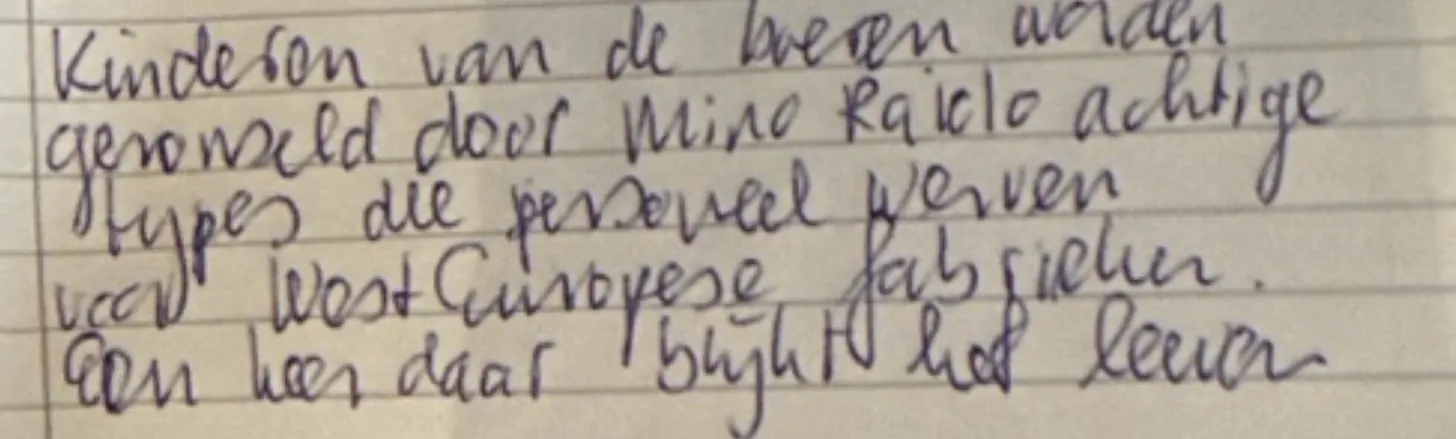 Kinderen van de boeren worden
geronseld door Mino Raiolo achtige
types die personeel werven
voor West Europese fabrieken.
Een keer daar blijkt het leven